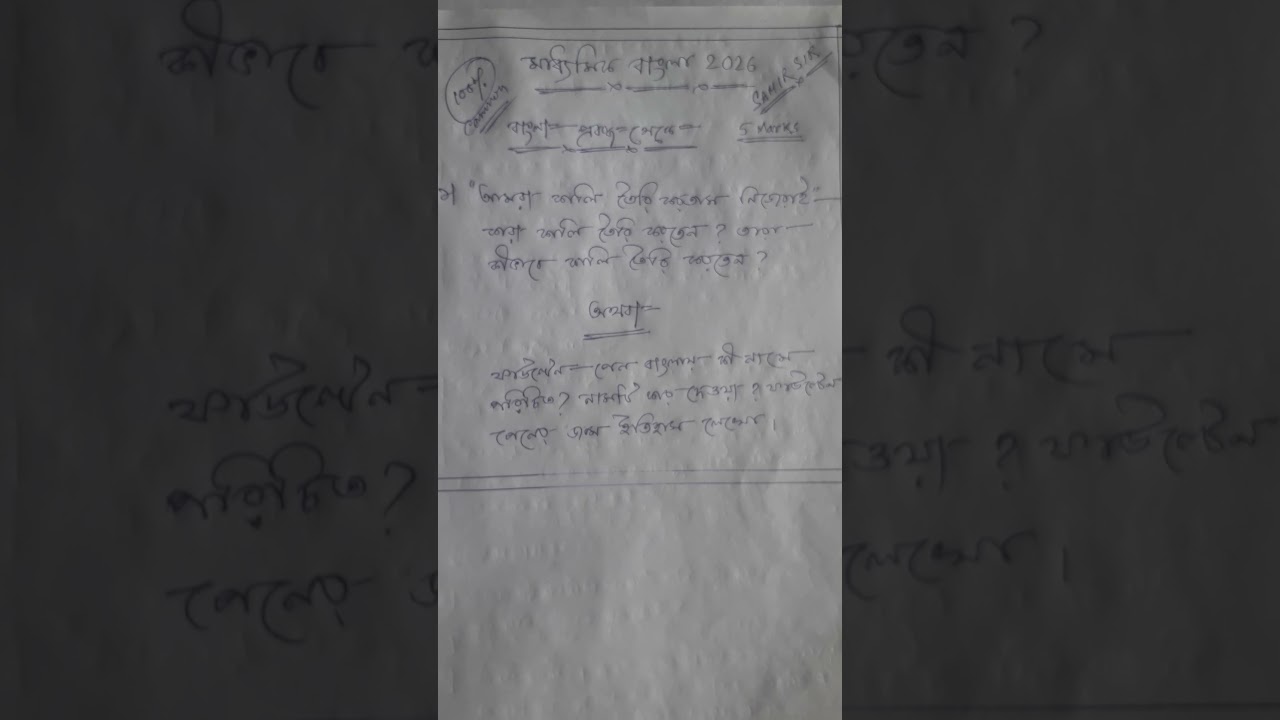 মাধ্যমিক বাংলা 2026
100% common
SAMIR SIR
বাংলা প্রবন্ধ থেকে
5 Marks
১। "আমরা কালি তৈরি করতাম নিজেরাই"—
কারা কালি তৈরি করতেন? তারা
কীভাবে কালি তৈরি করতেন?
অথবা
ফাউন্টেন পেন বাংলায় কী নামে
পরিচিত? নামটি কার দেওয়া? ফাউন্টেন
পেনের জন্ম ইতিহাস লেখো।